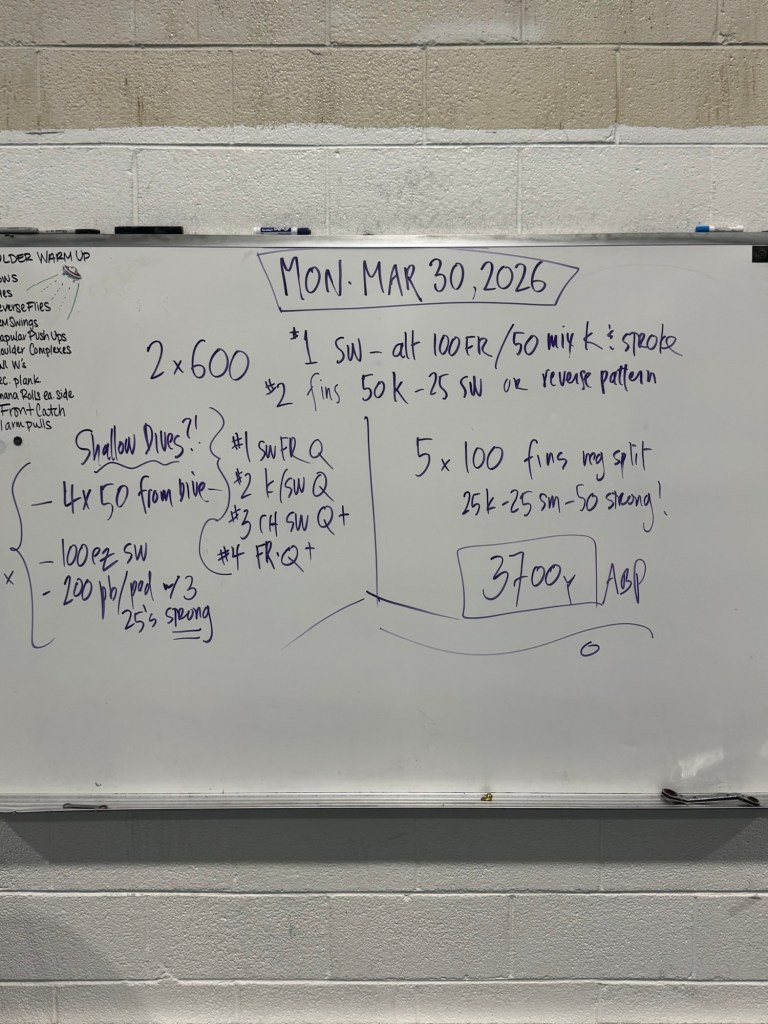 MON. MAR 30, 2026
WARM UP
Push Ups
Complexes
plank
Rolls ea. side
Front Catch
2 x 600
#1 SW - alt 100 FR / 50 mix K & stroke
#2 fins 50 K - 25 SW or reverse pattern
Shallow Dives?!
- 4 x 50 from Dive -
#1 SW FR Q
#2 K/SW Q
#3 CH SW Q+
#4 FR Q+
- 100 ez SW
- 200 pb/pad w/ 3
25's strong
x
5 x 100 fins neg split
25 K - 25 sm - 50 strong!
3700y ABP